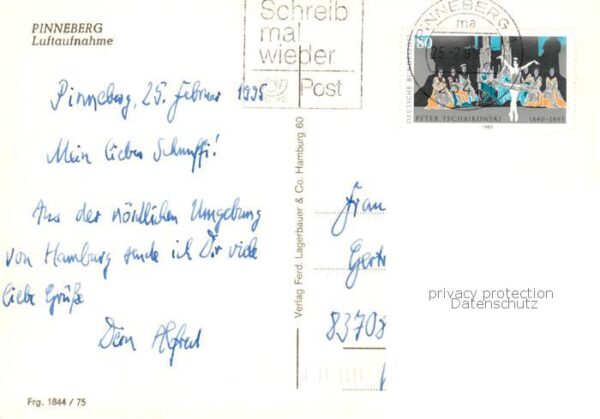 PINNEBERG
Luftaufnahme
Schreib
mal
wieder
Post
PINNEBERG
ma
80
DEUTSCHE BUNDESPOST
PETER TSCHAIKOWSKI 1840-1893
1993
Pinneberg, 25. Februar 1995
Mein liebes Schnuffi!
Aus der nördlichen Umgebung
von Hamburg sende ich Dir viele
liebe Grüße
Dein Alfred
Verlag Ferd. Lagerbauer & Co. Hamburg 60
Frau
Gertr
83708
privacy protection
Datenschutz
Frg. 1844 / 75